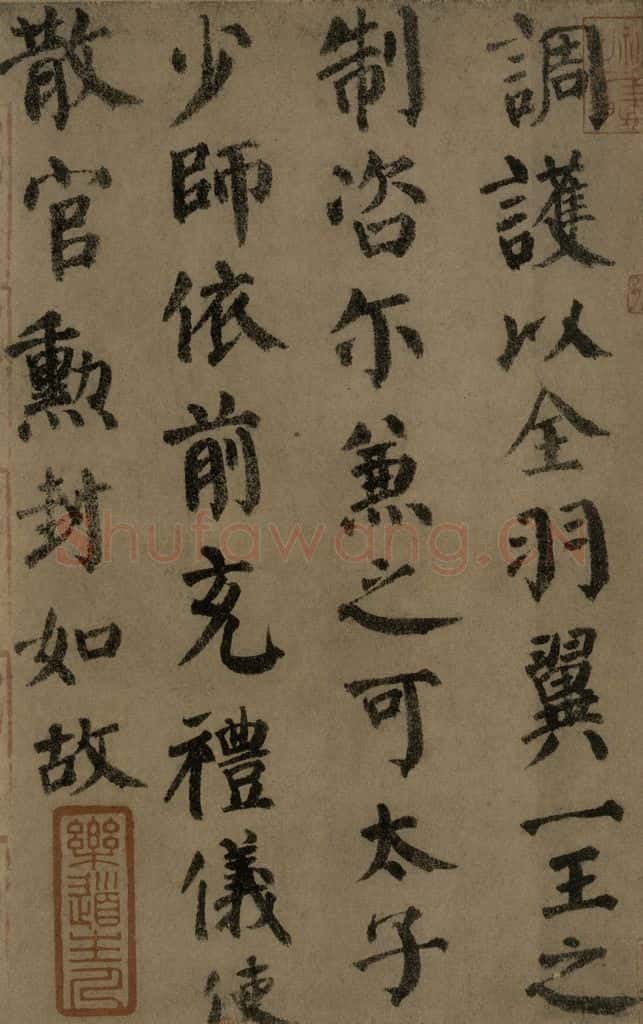 調護以全羽翼一王之
制咨尔兼之可太子
少師依前充禮儀使
散官勲封如故
樂道主人
Shufawang.CN